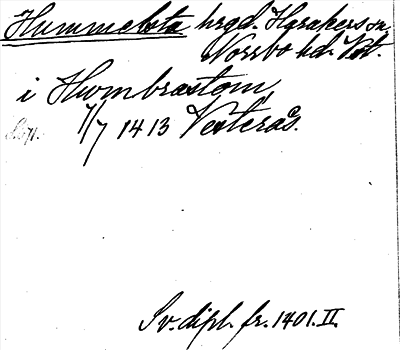 Hummelsta hrgd. Haraker sn.
Norrbo hd. Vstm.
i Hwmbrastom
7/7 1413 Vesterås.
Sv. dipl. fr. 1401. II.